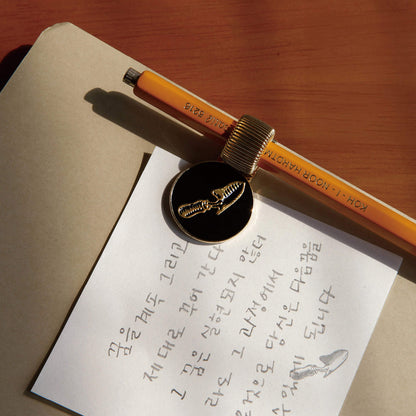 꿈을 계속 그리고
제대로 간다
그 꿈은 실현되지 않더
라도 그 과정에서
것으로 당신은 다음꿈을
됩니다
KOH-I-NOOR HARDTM